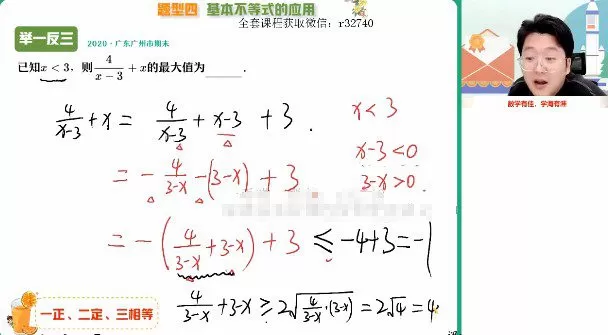 题型四 基本不等式的应用
全套课程获取微信：r32740
举一反三
2020·广东广州市期末
已知x < 3，则4/(x-3) + x的最大值为 ____.
4/(x-3) + x = 4/(x-3) + x-3 + 3 .
x < 3
= - 4/(3-x) - (3-x) + 3
x-3 < 0
3-x > 0.
= - (4/(3-x) + 3-x) + 3 ≤ -4+3 = -1
4/(3-x) + 3-x ≥ 2√(4/(3-x)·(3-x)) = 2√4 = 4.
一正、二定、三相等
数学有佳，学海有涯